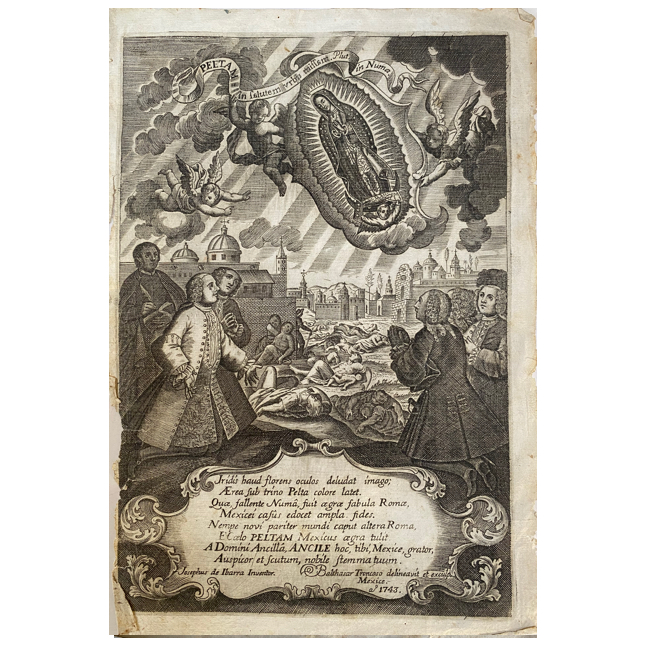 PELTAM in salutem Urbis Plut. in Numa.
Iridis haud florens oculos deludat imago;
Ærea sub trino Pelta colore latet.
Quæ, fallente Numâ, fuit ægræ fabula Romæ,
Mexicei casûs edocet ampla fides.
Nempe novi pariter mundi caput altera Roma,
E cælo PELTAM Mexicus ægra tulit.
A Domini Ancillâ, ANCILE hoc, tibi, Mexice, grator,
Auspicor et scutum, nobile stemma tuum.
Josephus de Ibarra Inventor. Balthasar Troncoso delineavit et exculp.
Mexico.
1743.